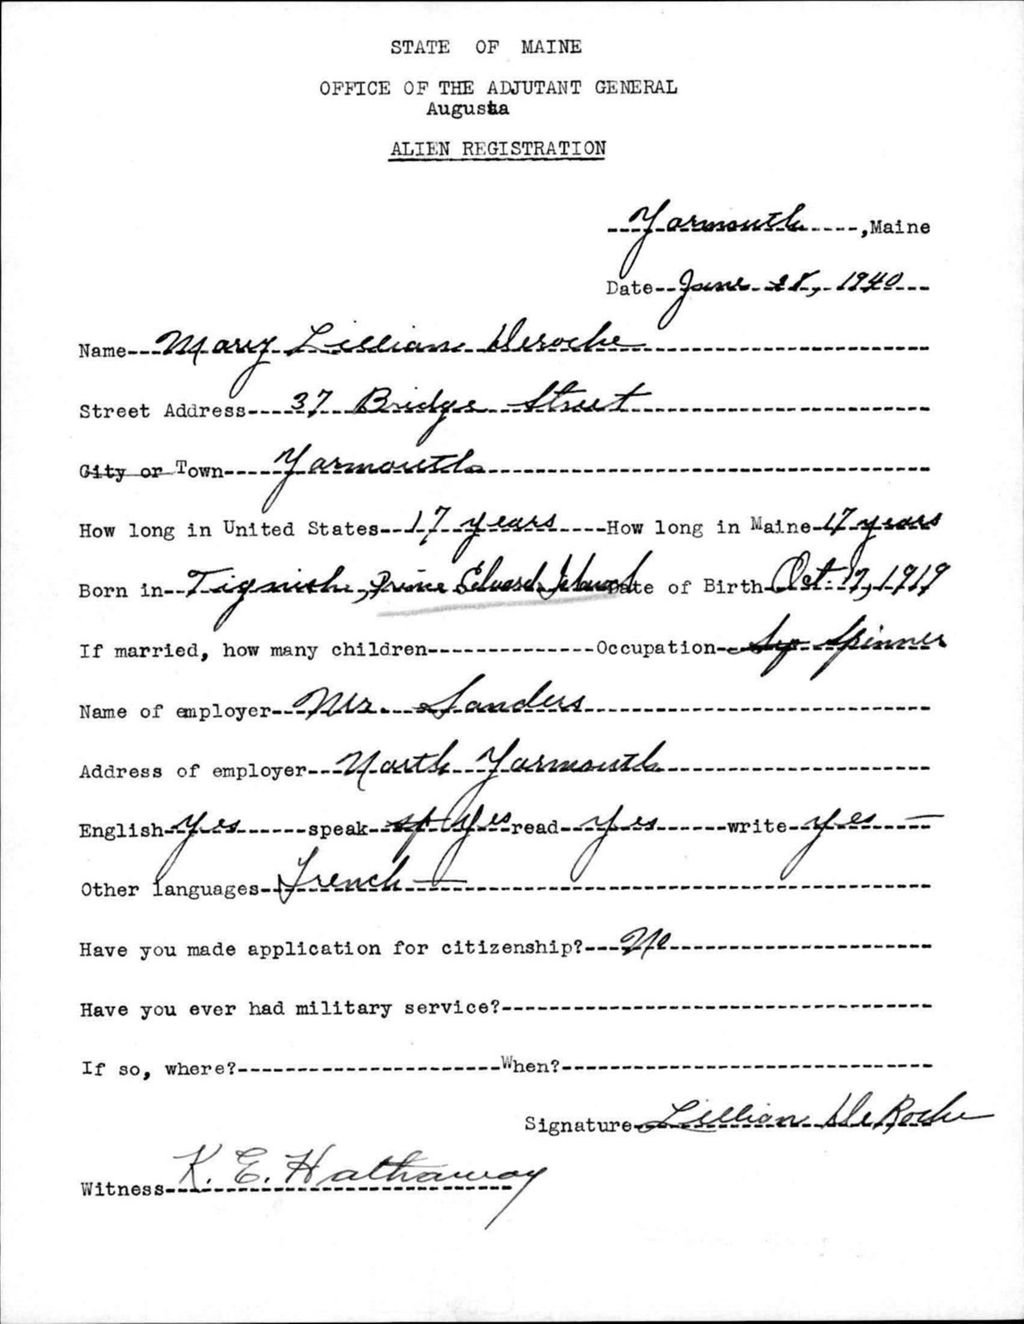 STATE OF MAINE
OFFICE OF THE ADJUTANT GENERAL
Augusta
ALIEN REGISTRATION
Yarmouth, Maine
Date June 28, 1940
Name Mary Lillian Deroche
Street Address 37 Bridge Street
City or Town Yarmouth
How long in United States 17 years How long in Maine 17 years
Born in Tignish, Prince Edward Island Date of Birth Oct. 17, 1919
If married, how many children Occupation Spinner
Name of employer Mr. Sanders
Address of employer North Yarmouth
English Yes speak Yes read Yes write yes
Other languages French
Have you made application for citizenship? No
Have you ever had military service?
If so, where? When?
Signature Lillian DeRoche
Witness K. E. Hathaway